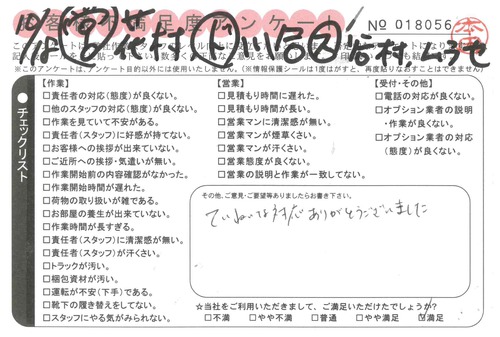 お客様満足度アンケート
No 018056
本
10/12
※このアンケートは、アンケート目的以外には使用いたしません。(※情報保護シールは1度はがすと、再度貼りなおすことはできません)
チェックリスト
【作業】
□責任者の対応(態度)が良くない。
□他のスタッフの対応(態度)が良くない。
□作業を見ていて不安がある。
□責任者(スタッフ)に好感が持てない。
□お客様への挨拶が出来ていない。
□ご近所への挨拶・気遣いが無い。
□作業開始前の内容確認がなかった。
□作業開始時間が遅れた。
□荷物の取り扱いが雑である。
□お部屋の養生が出来ていない。
□作業時間が長すぎる。
□責任者(スタッフ)に清潔感が無い。
□責任者(スタッフ)が汗くさい。
□トラックが汚い。
□梱包資材が汚い。
□運転が不安(下手)である。
□靴下の履き替えをしてない。
□スタッフにやる気がみられない。
【営業】
□見積もり時間に遅れた。
□見積もり時間が長い。
□営業マンに清潔感が無い。
□営業マンが煙草くさい。
□営業マンが汗くさい。
□営業態度が良くない。
□営業の説明と作業が一致してない。
【受付・その他】
□電話の対応が良くない。
□オプション業者の説明
・作業が良くない。
□オプション業者の対応
(態度)が良くない。
その他、ご意見・ご要望等ありましたらお書き下さい。
ていねいな対応ありがとうございました
☆当社をご利用いただきまして、ご満足いただけたでしょうか?
□不満 □やや不満 □普通 □やや満足 ☑満足